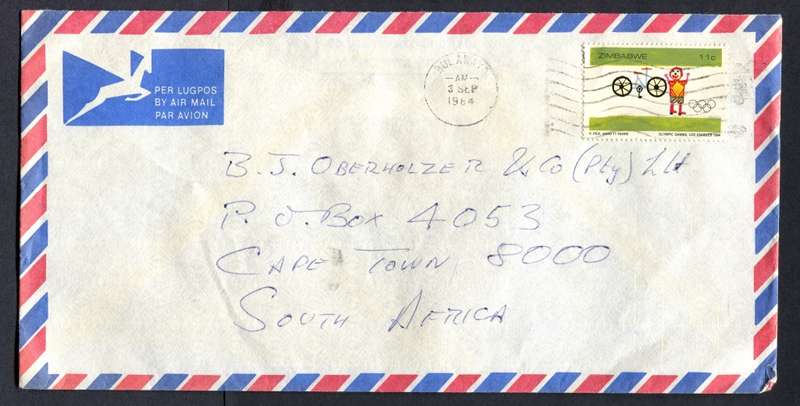 PER LUGPOS
BY AIR MAIL
PAR AVION
AM
3 SEP
1984
ZIMBABWE 11c
B. J. OBERHOLZER & Co (Pty) Ltd
P. O. BOX 4053
CAPE TOWN 8000
SOUTH AFRICA